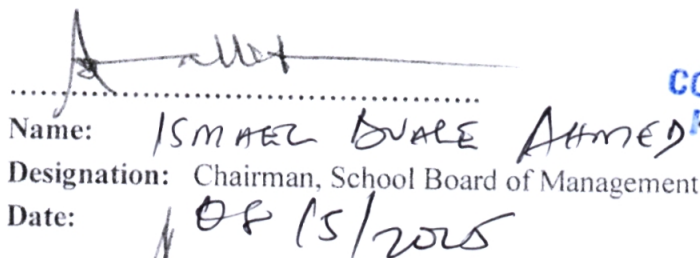 ........................................................
Name: ISMAEL DUALE AHMED
Designation: Chairman, School Board of Management
Date: 08/5/2025